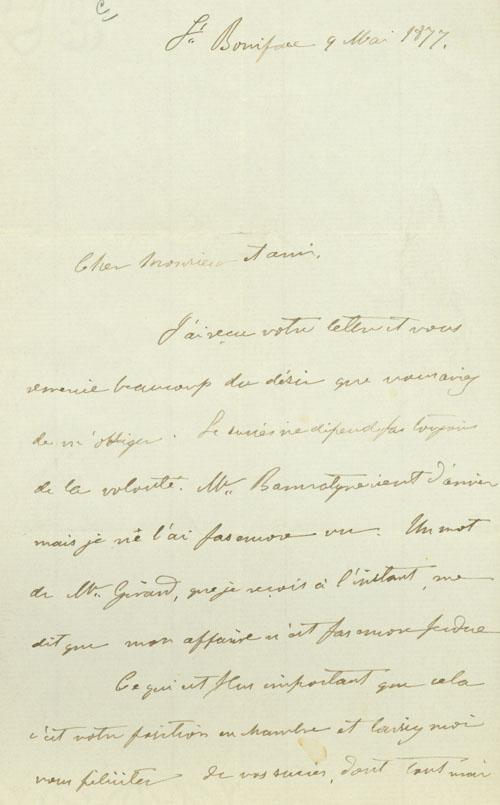 St. Boniface 9 Mai 1877.
Cher Monsieur et ami,
J'ai reçu votre lettre et vous
remercie beaucoup du désir que vous aviez
de m'obliger. Le succès ne dépend pas toujours
de la volonté. Mr. Bannatyne vient d'arriver
mais je ne l'ai pas encore vu. Un mot
de Mr. Girard, que je reçois à l'instant, me
dit que mon affaire n'est pas encore perdue
Ce qui est plus important que cela
c'est votre position en chambre et laissez moi
vous féliciter de vos succès, dont tout